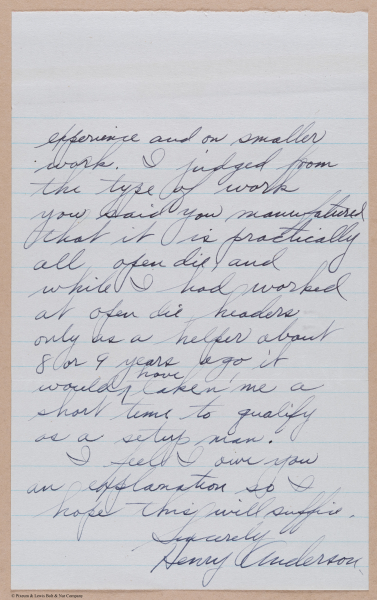 experience and on smaller
work. I judged from
the type of work
you said you manufactured
that it is practically
all open die, and
while I had worked
at open die headers
only as a helper about
8 or 9 years ago it
would have taken me a
short time to qualify
as a setup man.
I feel I owe you
an explanation so I
hope this will suffice.
Sincerely
Henry Anderson
© Pearson & Lewis Bolt & Nut Company